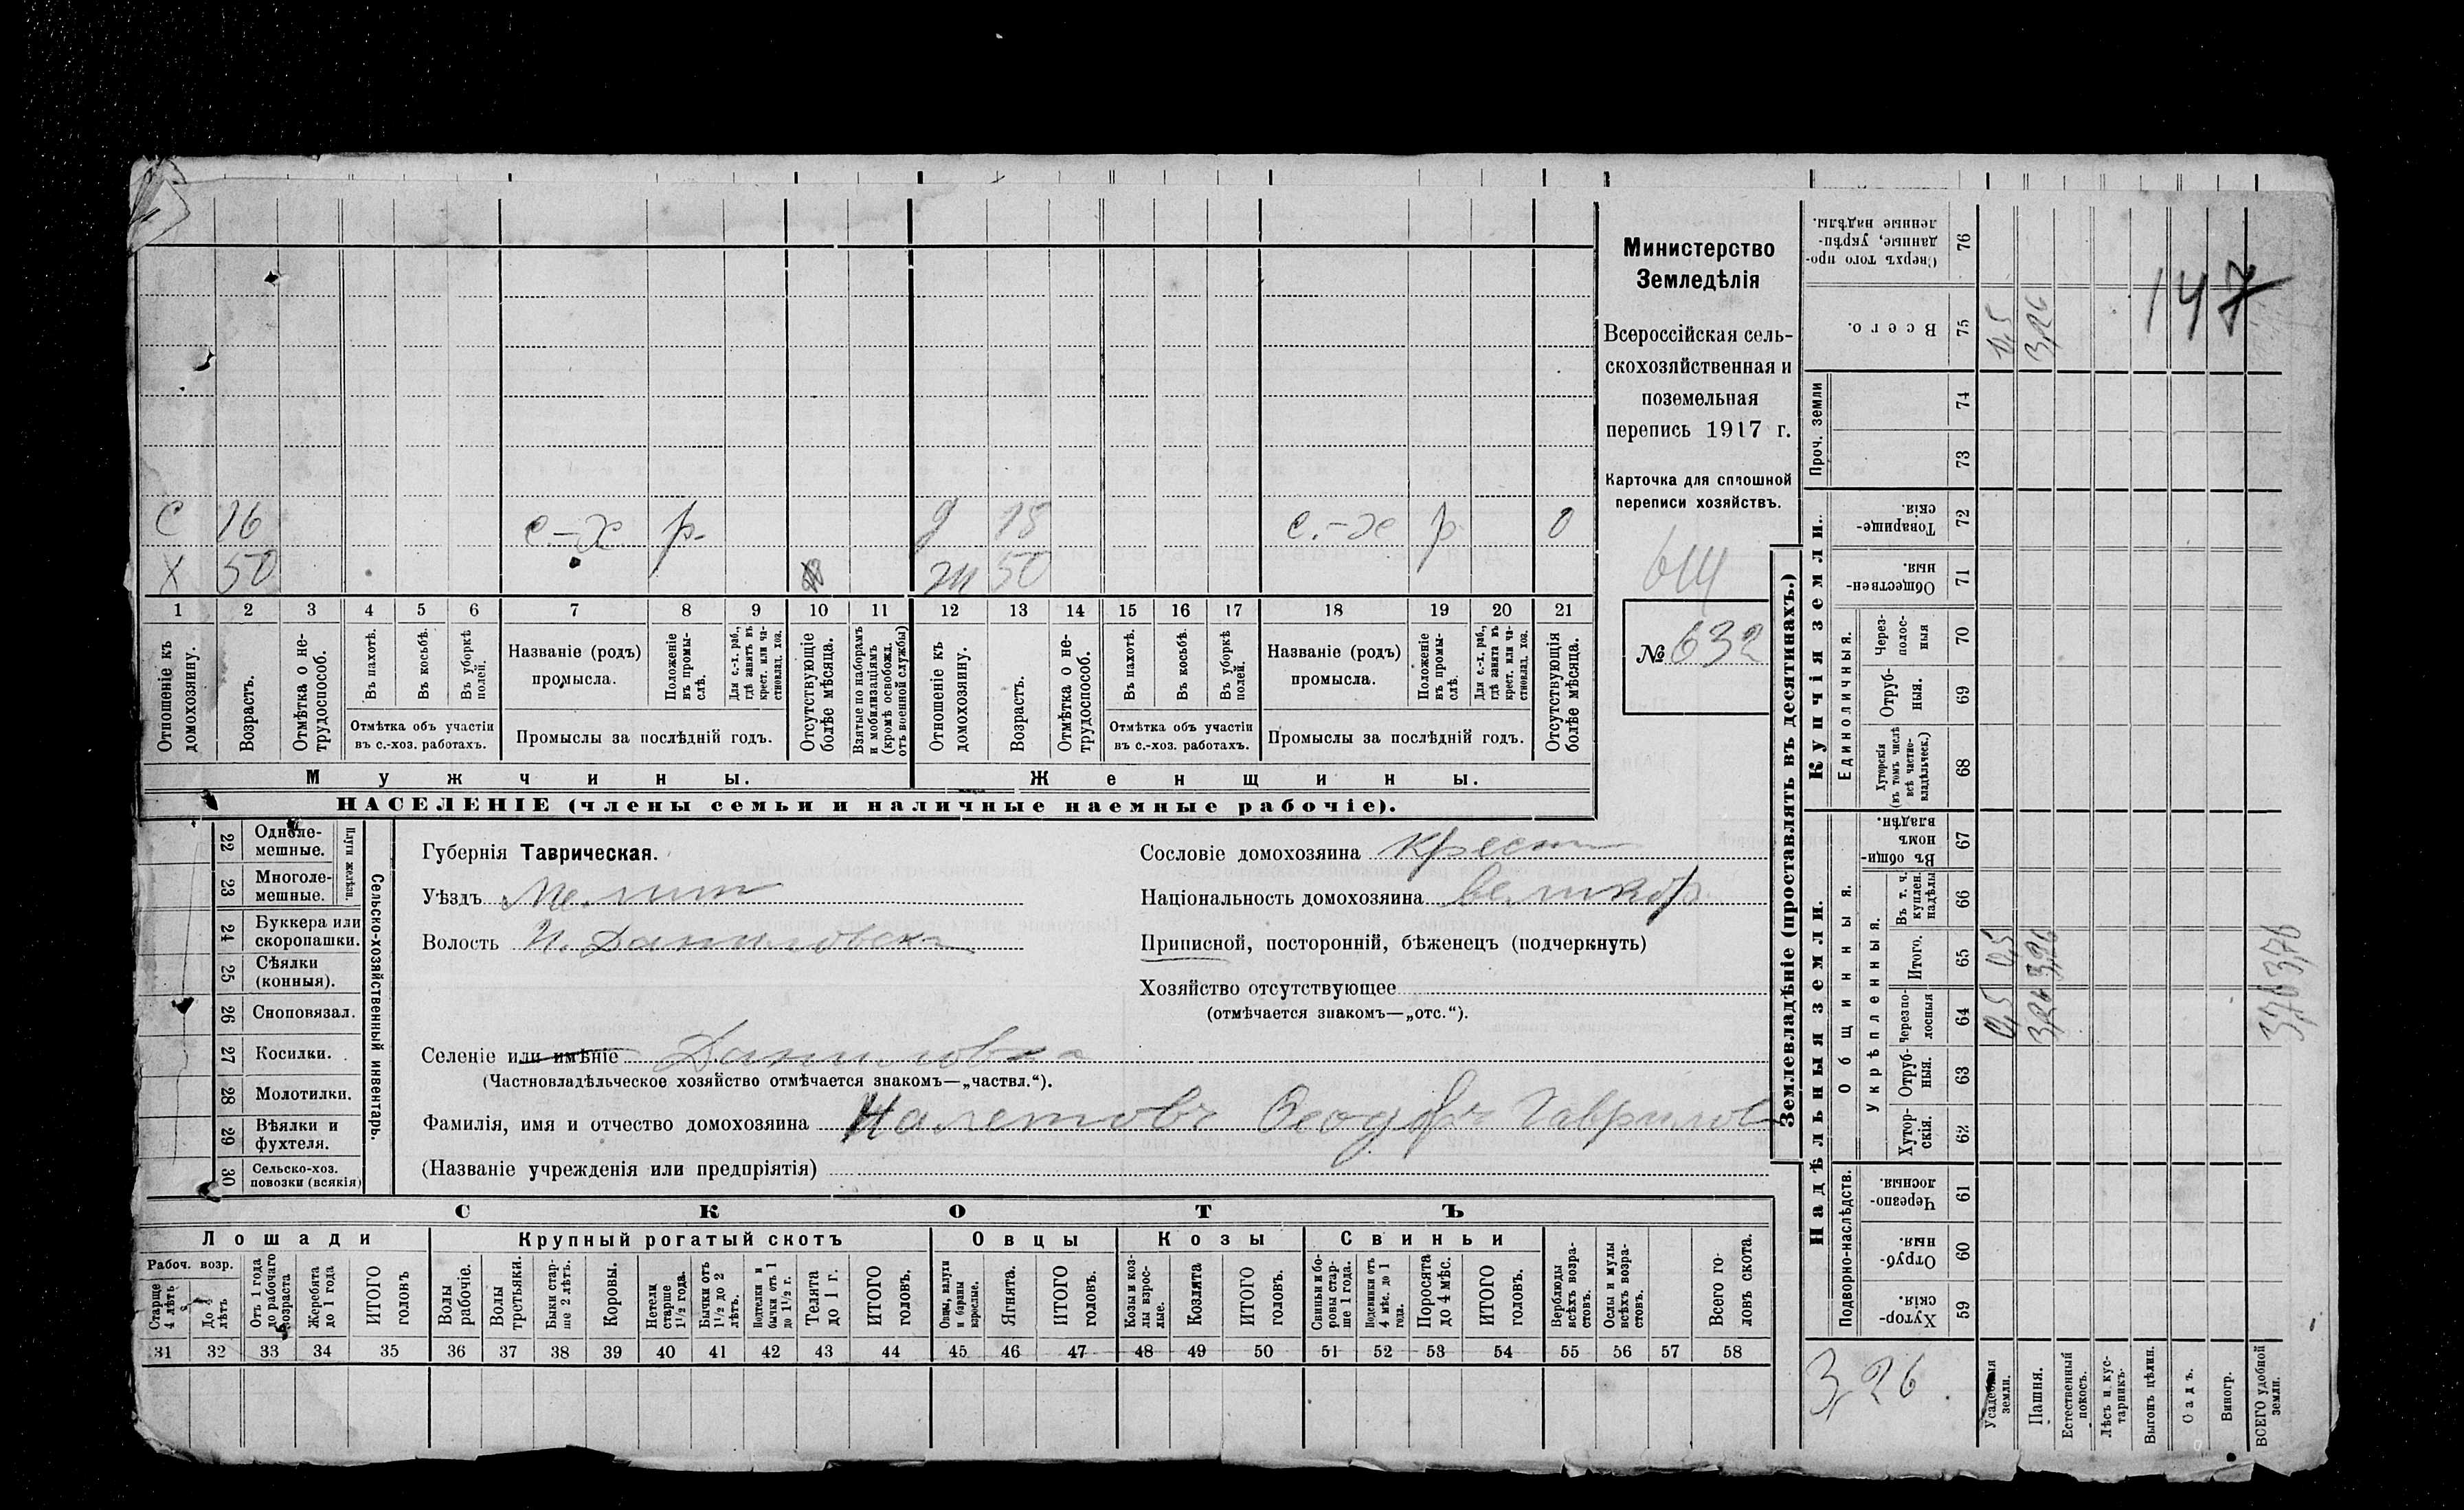 С 16 с.-х р. д 15 с.-х р 0
Х 50 ж 50
1 2 3 4 5 6 7 8 9 10 11 12 13 14 15 16 17 18 19 20 21
Отношеніе къ домохозяину.
Возрастъ.
Отмѣтка о не-трудоспособ.
Въ пахотѣ.
Въ косьбѣ.
Въ уборкѣ полей.
Отмѣтка объ участіи
въ с.-хоз. работахъ.
Названіе (родъ)
промысла.
Положеніе въ промы-слѣ.
Для с.-х. раб., гдѣ занятъ въ крест. или ча-стновлад. хоз.
Промыслы за послѣдній годъ.
Отсутствующіе болѣе мѣсяца.
Взятые по наборамъ и мобилизаціямъ (кромѣ освобожд. отъ военной службы)
Отношеніе къ домохозяину.
Возрастъ.
Отмѣтка о не-трудоспособ.
Въ пахотѣ.
Въ косьбѣ.
Въ уборкѣ полей.
Отмѣтка объ участіи
въ с.-хоз. работахъ.
Названіе (родъ)
промысла.
Положеніе въ промы-слѣ.
Для с.-х. раб., гдѣ занята въ крест. или ча-стновлад. хоз.
Промыслы за послѣдній годъ.
Отсутствующія болѣе мѣсяца.
Мужчины. Женщины.
НАСЕЛЕНІЕ (члены семьи и наличные наемные рабочіе).
Министерство
Земледѣлія
Всероссійская сель-
скохозяйственная и
поземельная
перепись 1917 г.
Карточка для сплошной
переписи хозяйствъ.
614
№ 632
Сельско-хозяйственный инвентарь.
Плуги желѣзн.
22 Одноле-мешные.
23 Многоле-мешные.
24 Буккера или скоропашки.
25 Сѣялки (конныя).
26 Сноповязал.
27 Косилки.
28 Молотилки.
29 Вѣялки и фухтеля.
30 Сельско-хоз. повозки (всякія)
Губернія Таврическая.
Уѣздъ Мелит
Волость Н. Даниловск
Сословіе домохозяина крест
Національность домохозяина великор.
Приписной, посторонній, бѣженецъ (подчеркнуть)
Хозяйство отсутствующее
(отмѣчается знакомъ—„отс.“).
Селеніе или имѣніе Даниловка
(Частновладѣльческое хозяйство отмѣчается знакомъ—„частвл.“).
Фамилія, имя и отчество домохозяина Налетовъ Ѳеодоръ Гаврилов
(Названіе учрежденія или предпріятія)
СКОТЪ
Лошади Крупный рогатый скотъ Овцы Козы Свиньи
Рабоч. возр.
Старше 4 лѣтъ
До 4 лѣтъ
Отъ 1 года до рабочаго возраста
Жеребята до 1 года
ИТОГО головъ
Волы рабочіе.
Волы третьяки.
Быки стар-ше 2 лѣтъ.
Коровы.
Нетели старше 1½ года.
Бычки отъ 1½ до 2 лѣтъ.
Подтелки и бычки отъ 1 до 1½ г.
Телята до 1 г.
ИТОГО головъ.
Овцы, валухи и бараны взрослые.
Ягнята.
ИТОГО головъ.
Козы и коз-лы взрос-лые.
Козлята
ИТОГО головъ.
Свиньи и бо-ровы стар-ше 1 года.
Подсвинки отъ 4 мѣс. до 1 года.
Поросята до 4 мѣс.
ИТОГО головъ.
Верблюды всѣхъ возра-стовъ.
Ослы и мулы всѣхъ возра-стовъ.
Всего го-ловъ скота.
31 32 33 34 35 36 37 38 39 40 41 42 43 44 45 46 47 48 49 50 51 52 53 54 55 56 57 58
Землевладѣніе (проставлять въ десятинахъ.)
147
Сверхъ того про-данные, укрѣп-ленные надѣлы. 76
Всего. 75 0,5 3,26
Проч. земли
74
73
Купчія земли.
Товарище-скія. 72
Обществен-ныя. 71
Единоличныя.
Через-полос-ныя 70
Отруб-ныя. 69
Хуторскія (въ томъ числѣ всѣ частно-владѣльческ.) 68
Надѣльныя земли.
Общинныя.
Въ общин-номъ владѣн. 67
Укрѣпленныя.
Въ т. ч. куплен. надѣлы 66
Итого. 65 0,5 3,26 3,76
Черезпо-лосныя 64 0,5 3,26 3,76
Отруб-ныя. 63
Хутор-скія. 62
Подворно-наслѣдств.
Черезпо-лосныя. 61
Отруб-ныя. 60
Хутор-скія. 59
3,26
Усадебныя земли.
Пашня.
Естественный покосъ.
Лѣсъ и кус-тарникъ.
Выгонъ цѣлин.
Садъ.
Виногр.
ВСЕГО удобной земли.